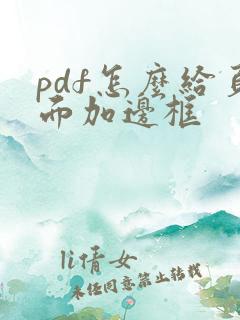 pdf怎麼給頁
而加邊框
li倩女
未任同意禁止转载